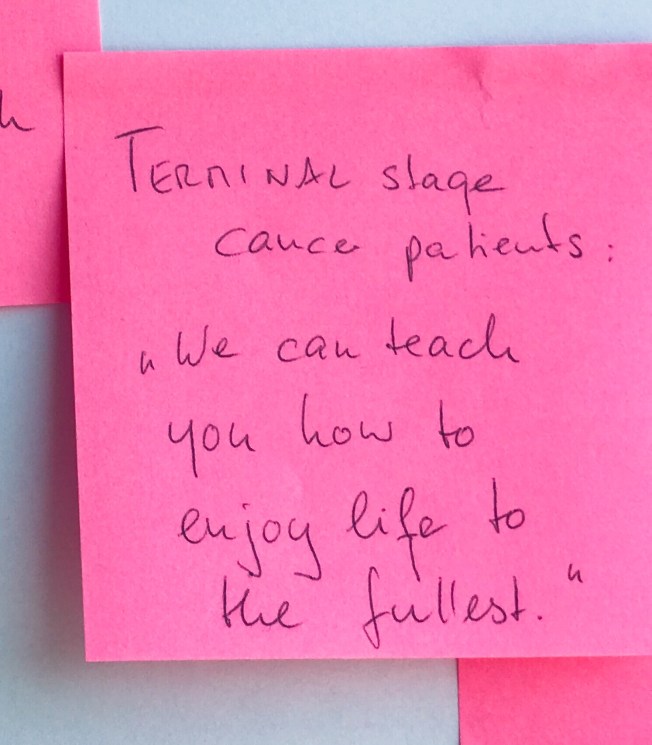 TERMINAL stage
cancer patients:
„We can teach
you how to
enjoy life to
the fullest."